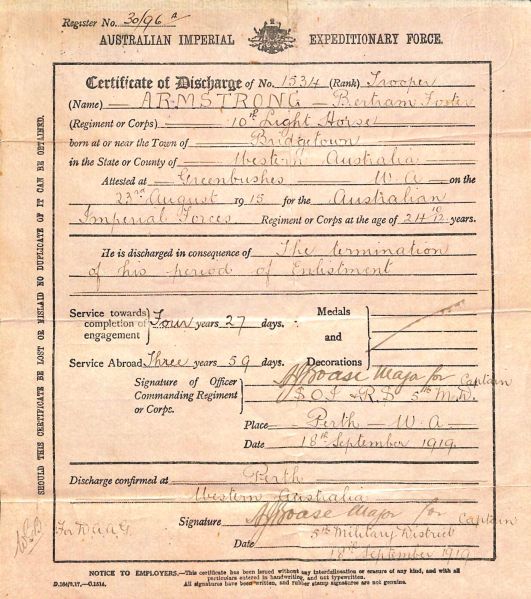 Register No. 30/96 a
AUSTRALIAN IMPERIAL EXPEDITIONARY FORCE.
Certificate of Discharge of No. 1534 (Rank) Trooper
(Name) ARMSTRONG - Bertram Foster
(Regiment or Corps) 10th Light Horse
born at or near the Town of Bridgetown
in the State or County of Western Australia
Attested at Greenbushes W.A on the
23rd August 1915 for the Australian
Imperial Forces Regiment or Corps at the age of 24 10/12 years.
He is discharged in consequence of The termination
of his period of Enlistment
Service towards completion of engagement } Four years 27 days.
Service Abroad Three years 59 days.
Medals and Decorations
Signature of Officer Commanding Regiment or Corps. J Boase Major for Captain
S.O.I. & R.S 5th M.D.
Place Perth - W.A -
Date 18th September 1919
Discharge confirmed at Perth
Western Australia
Signature J Boase Major for Captain
For D.A.A.G.
5th Military District
Date 18th September 1919
SHOULD THIS CERTIFICATE BE LOST OR MISLAID NO DUPLICATE OF IT CAN BE OBTAINED.
NOTICE TO EMPLOYERS.—This certificate has been issued without any interdelineation or erasure of any kind, and with all
particulars entered in handwriting, and not typewritten.
D.164/7.17.—C.1514. All signatures have been written, and rubber stamp signatures are not genuine.